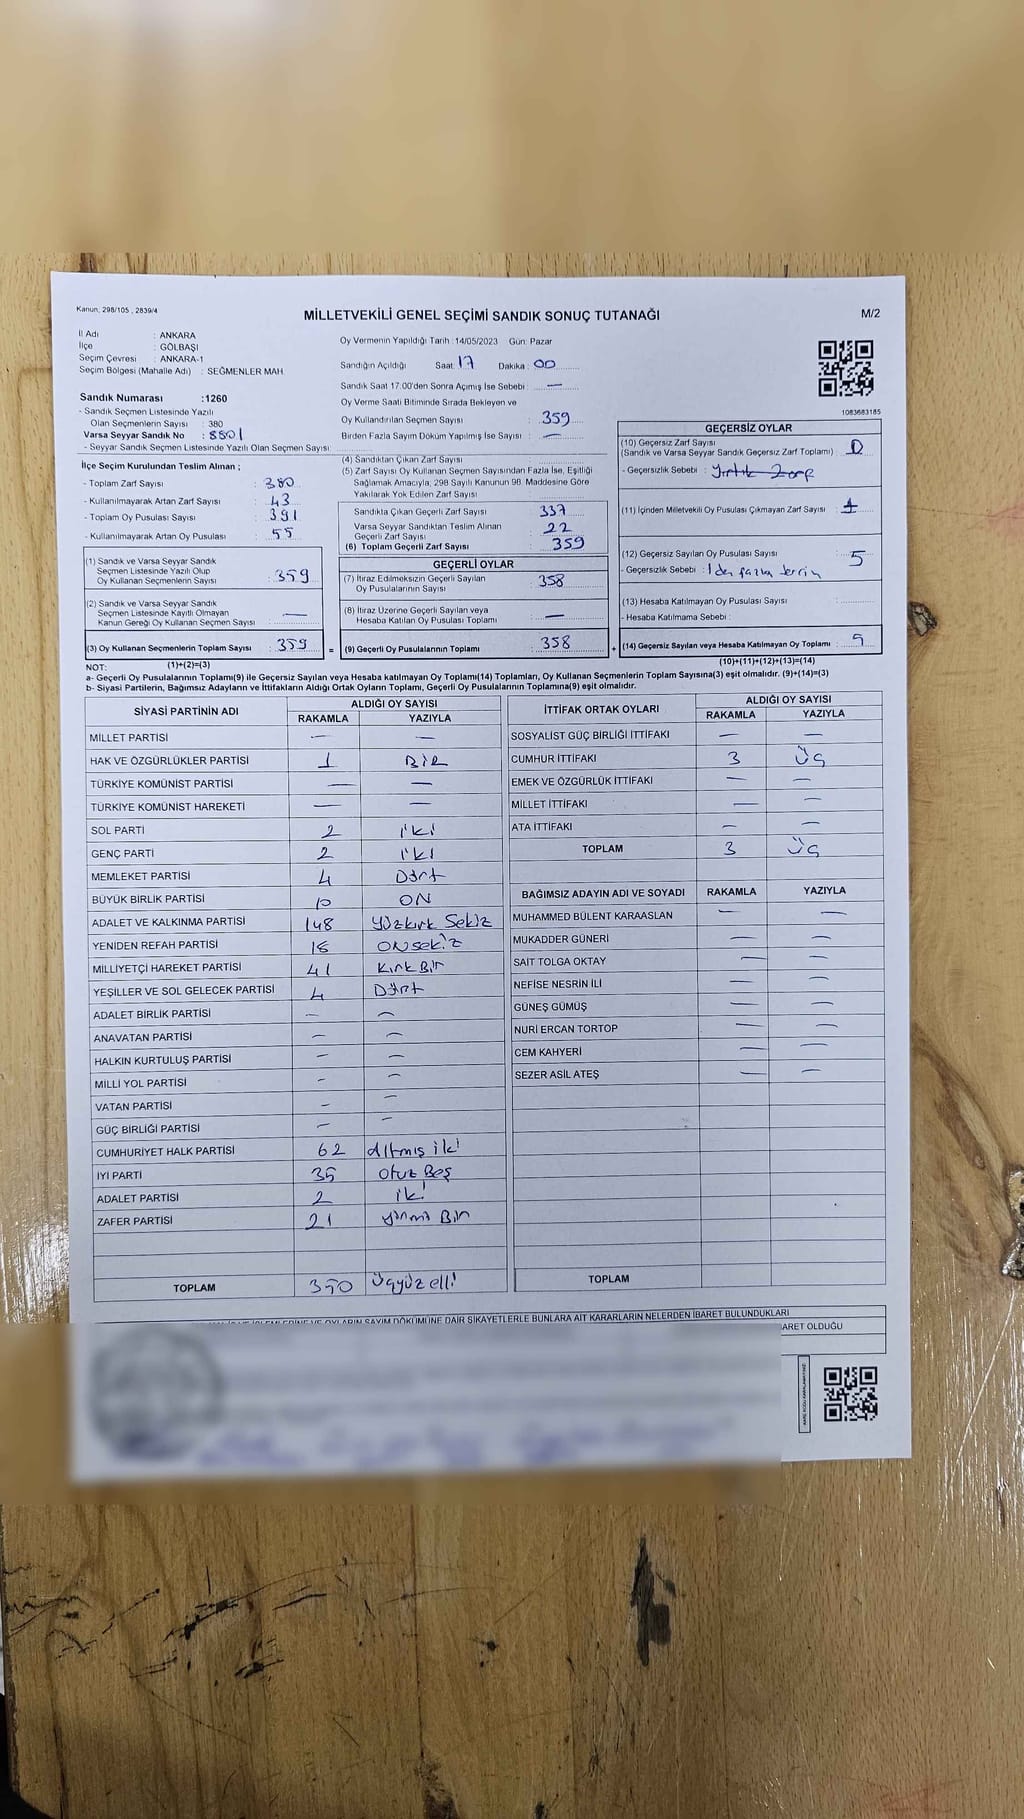 Kanun; 298/105 , 2839/4
MİLLETVEKİLİ GENEL SEÇİMİ SANDIK SONUÇ TUTANAĞI
M/2
İl Adı : ANKARA
İlçe : GÖLBAŞI
Seçim Çevresi : ANKARA-1
Seçim Bölgesi (Mahalle Adı) : SEĞMENLER MAH.
Sandık Numarası :1260
- Sandık Seçmen Listesinde Yazılı
Olan Seçmenlerin Sayısı : 380
Varsa Seyyar Sandık No : 8501
- Seyyar Sandık Seçmen Listesinde Yazılı Olan Seçmen Sayısı:
İlçe Seçim Kurulundan Teslim Alınan ;
- Toplam Zarf Sayısı : 380
- Kullanılmayarak Artan Zarf Sayısı : 43
- Toplam Oy Pusulası Sayısı : 391
- Kullanılmayarak Artan Oy Pusulası : 55
(1) Sandık ve Varsa Seyyar Sandık
Seçmen Listesinde Yazılı Olup
Oy Kullanan Seçmenlerin Sayısı : 359
(2) Sandık ve Varsa Seyyar Sandık
Seçmen Listesinde Kayıtlı Olmayan
Kanun Gereği Oy Kullanan Seçmen Sayısı : —
(3) Oy Kullanan Seçmenlerin Toplam Sayısı : 359 =
Oy Vermenin Yapıldığı Tarih : 14/05/2023 Gün: Pazar
Sandığın Açıldığı Saat: 17 Dakika : 00
Sandık Saat 17:00'den Sonra Açımış İse Sebebi : —
Oy Verme Saati Bitiminde Sırada Bekleyen ve
Oy Kullandırılan Seçmen Sayısı : 359
Birden Fazla Sayım Döküm Yapılmış İse Sayısı : —
(4) Sandıktan Çıkan Zarf Sayısı :
(5) Zarf Sayısı Oy Kullanan Seçmen Sayısından Fazla İse, Eşitliği
Sağlamak Amacıyla; 298 Sayılı Kanunun 98. Maddesine Göre
Yakılarak Yok Edilen Zarf Sayısı :
Sandıkta Çıkan Geçerli Zarf Sayısı : 337
Varsa Seyyar Sandıktan Teslim Alınan
Geçerli Zarf Sayısı : 22
(6) Toplam Geçerli Zarf Sayısı : 359
GEÇERLİ OYLAR
(7) İtiraz Edilmeksizin Geçerli Sayılan
Oy Pusulalarının Sayısı : 358
(8) İtiraz Üzerine Geçerli Sayılan veya
Hesaba Katılan Oy Pusulası Toplamı : —
(9) Geçerli Oy Pusulalarının Toplamı : 358 +
1083683185
GEÇERSİZ OYLAR
(10) Geçersiz Zarf Sayısı
(Sandık ve Varsa Seyyar Sandık Geçersiz Zarf Toplamı) : 0
- Geçersizlik Sebebi : Yırtık Zarf
(11) İçinden Milletvekili Oy Pusulası Çıkmayan Zarf Sayısı :
(12) Geçersiz Sayılan Oy Pusulası Sayısı : 5
- Geçersizlik Sebebi : 1 den fazla
(13) Hesaba Katılmayan Oy Pusulası Sayısı :
- Hesaba Katılmama Sebebi :
(14) Geçersiz Sayılan veya Hesaba Katılmayan Oy Toplamı : 9
NOT: (1)+(2)=(3)
(10)+(11)+(12)+(13)=(14)
a- Geçerli Oy Pusulalarının Toplamı(9) ile Geçersiz Sayılan veya Hesaba katılmayan Oy Toplamı(14) Toplamları, Oy Kullanan Seçmenlerin Toplam Sayısına(3) eşit olmalıdır. (9)+(14)=(3)
b- Siyasi Partilerin, Bağımsız Adayların ve İttifakların Aldığı Ortak Oyların Toplamı, Geçerli Oy Pusulalarının Toplamına(9) eşit olmalıdır.
SİYASİ PARTİNİN ADI
ALDIĞI OY SAYISI
RAKAMLA YAZIYLA
MİLLET PARTİSİ — —
HAK VE ÖZGÜRLÜKLER PARTİSİ 1 BİR
TÜRKİYE KOMÜNİST PARTİSİ — —
TÜRKİYE KOMÜNİST HAREKETİ — —
SOL PARTİ 2 iki
GENÇ PARTİ 2 iki
MEMLEKET PARTİSİ 4 Dört
BÜYÜK BİRLİK PARTİSİ 10 ON
ADALET VE KALKINMA PARTİSİ 148 Yüzkırk Sekiz
YENİDEN REFAH PARTİSİ 18 ONsekiz
MİLLİYETÇİ HAREKET PARTİSİ 41 Kırk Bir
YEŞİLLER VE SOL GELECEK PARTİSİ 4 Dört
ADALET BİRLİK PARTİSİ — —
ANAVATAN PARTİSİ — —
HALKIN KURTULUŞ PARTİSİ — —
MİLLİ YOL PARTİSİ — —
VATAN PARTİSİ — —
GÜÇ BİRLİĞİ PARTİSİ — —
CUMHURİYET HALK PARTİSİ 62 Altmış iki
İYİ PARTİ 35 Otuz Beş
ADALET PARTİSİ 2 iki
ZAFER PARTİSİ 21 yirmi Bir
TOPLAM 350 Üçyüz elli
İTTİFAK ORTAK OYLARI
ALDIĞI OY SAYISI
RAKAMLA YAZIYLA
SOSYALİST GÜÇ BİRLİĞİ İTTİFAKI — —
CUMHUR İTTİFAKI 3 Üç
EMEK VE ÖZGÜRLÜK İTTİFAKI — —
MİLLET İTTİFAKI — —
ATA İTTİFAKI — —
TOPLAM 3 Üç
BAĞIMSIZ ADAYIN ADI VE SOYADI RAKAMLA YAZIYLA
MUHAMMED BÜLENT KARAASLAN — —
MUKADDER GÜNERİ — —
SAİT TOLGA OKTAY — —
NEFİSE NESRİN İLİ — —
GÜNEŞ GÜMÜŞ — —
NURİ ERCAN TORTOP — —
CEM KAHYERİ — —
SEZER ASİL ATEŞ — —
TOPLAM
OYLARIN SAYIM DÖKÜMÜNE DAİR ŞİKAYETLERLE BUNLARA AİT KARARLARIN NELERDEN İBARET BULUNDUKLARI
İBARET OLDUĞU